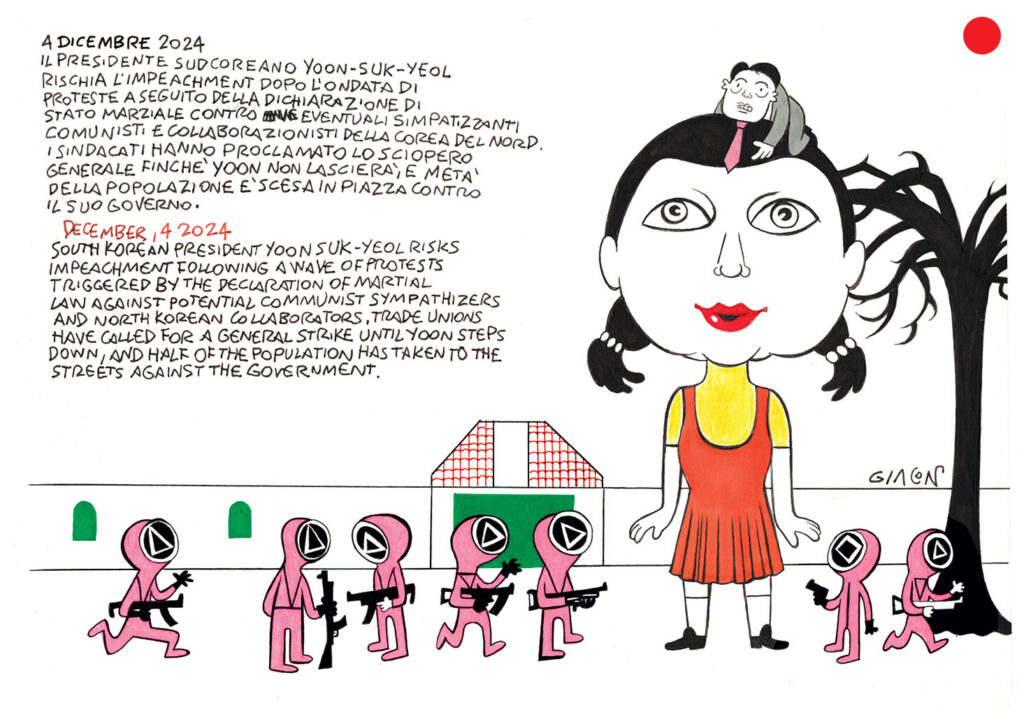 4 DICEMBRE 2024
IL PRESIDENTE SUDCOREANO YOON-SUK-YEOL
RISCHIA L'IMPEACHMENT DOPO L'ONDATA DI
PROTESTE A SEGUITO DELLA DICHIARAZIONE DI
STATO MARZIALE CONTRO EVENTUALI SIMPATIZZANTI
COMUNISTI E COLLABORAZIONISTI DELLA COREA DEL NORD.
I SINDACATI HANNO PROCLAMATO LO SCIOPERO
GENERALE FINCHE' YOON NON LASCIERA', E META'
DELLA POPOLAZIONE E' SCESA IN PIAZZA CONTRO
IL SUO GOVERNO.
DECEMBER, 4 2024
SOUTH KOREAN PRESIDENT YOON SUK-YEOL RISKS
IMPEACHMENT FOLLOWING A WAVE OF PROTESTS
TRIGGERED BY THE DECLARATION OF MARTIAL
LAW AGAINST POTENTIAL COMMUNIST SYMPATHIZERS
AND NORTH KOREAN COLLABORATORS, TRADE UNIONS
HAVE CALLED FOR A GENERAL STRIKE UNTIL YOON STEPS
DOWN, AND HALF OF THE POPULATION HAS TAKEN TO THE
STREETS AGAINST THE GOVERNMENT.